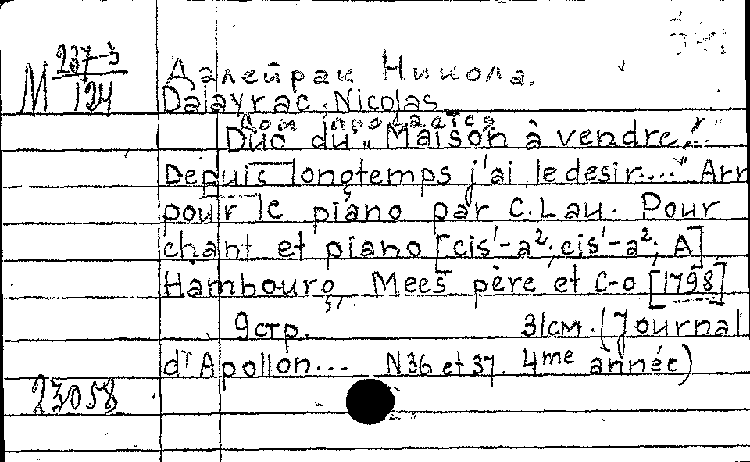 M 237-3/124
Далейрак Никола.
Dalayrac Nicolas
Дом продается
Duo du „Maison à vendre".
Depuis longtemps j'ai le desir...." Arr
pour le piano par C. Lau. Pour
chant et piano [cis¹-a²; cis¹-a²; A]
Hambourg, Mees père et C-o [1798]
9 стр. 31 см. (Journal
d'Apollon... N36 et 37. 4me année)
23058